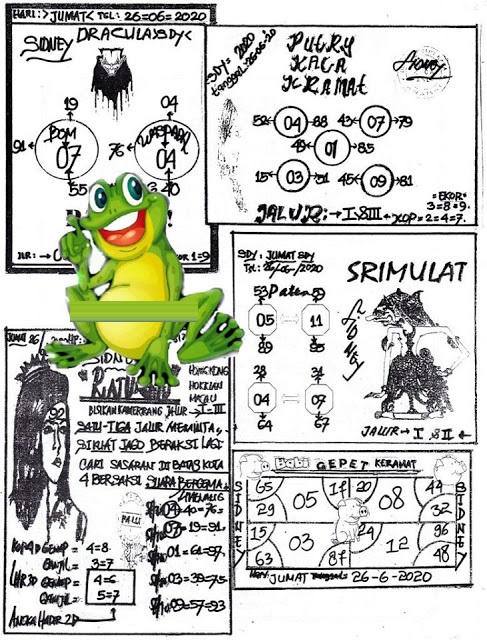 HARI : JUMAT < TGL : 26=06= 2020
SIDNEY
DRACULA SDY <
19
04
BOM
07
91
76
04
55
SDY= 2020
PUTRY
KACA
KRAMAT
Sidney
52 04 88
43 07 79
48 01 85
15 03 51
45 09 81
=EKOR=
3=8=9.
JALUR: → I &III ← KOP=2=4=7.
SDY : JUMAT SDY
Tgl: 26/06/2020
SRIMULAT
53 Paten 59
05 11
89 95
28 31
04 07
64 67
SIDNEY
JALUR → I &II ←
JUMAT 26
SIDNEY
RATU
HONGKONG
HOKKIAN
MACAU
92
JALUR → I-III
SATU-TIGA JALUR MEMINTA,,
SIKUAT JAGO BERAKSI LAGI
CARI SASARAN DI BATAS KOTA
4 BERSAKSI SUARA BERGEMA
04=40=76=
07=19=91=
01=61=97=
03=39=75
09=57=93
KOP 4D GENAP = 4=8=
GANJIL= 3=7=
GENAP = 4=6=
GANJIL= 5=7=
ANGKA HADIR 2D
Babi GEPET KERAMAT
SIDNEY
65 05 17 20 08 44
29 32
15 03 24 12 96
63 87 48
SIDNEY
HARI: JUMAT Tanggal= 26-6-2020